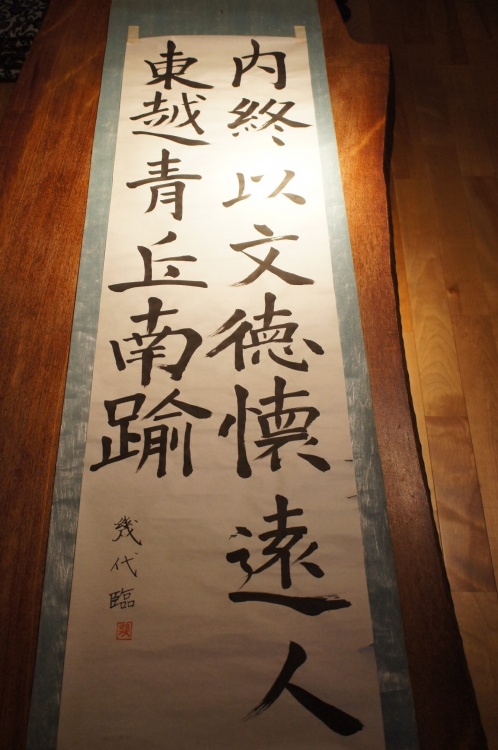 内終以文德懷遠人
東越青丘南踰
幾代臨